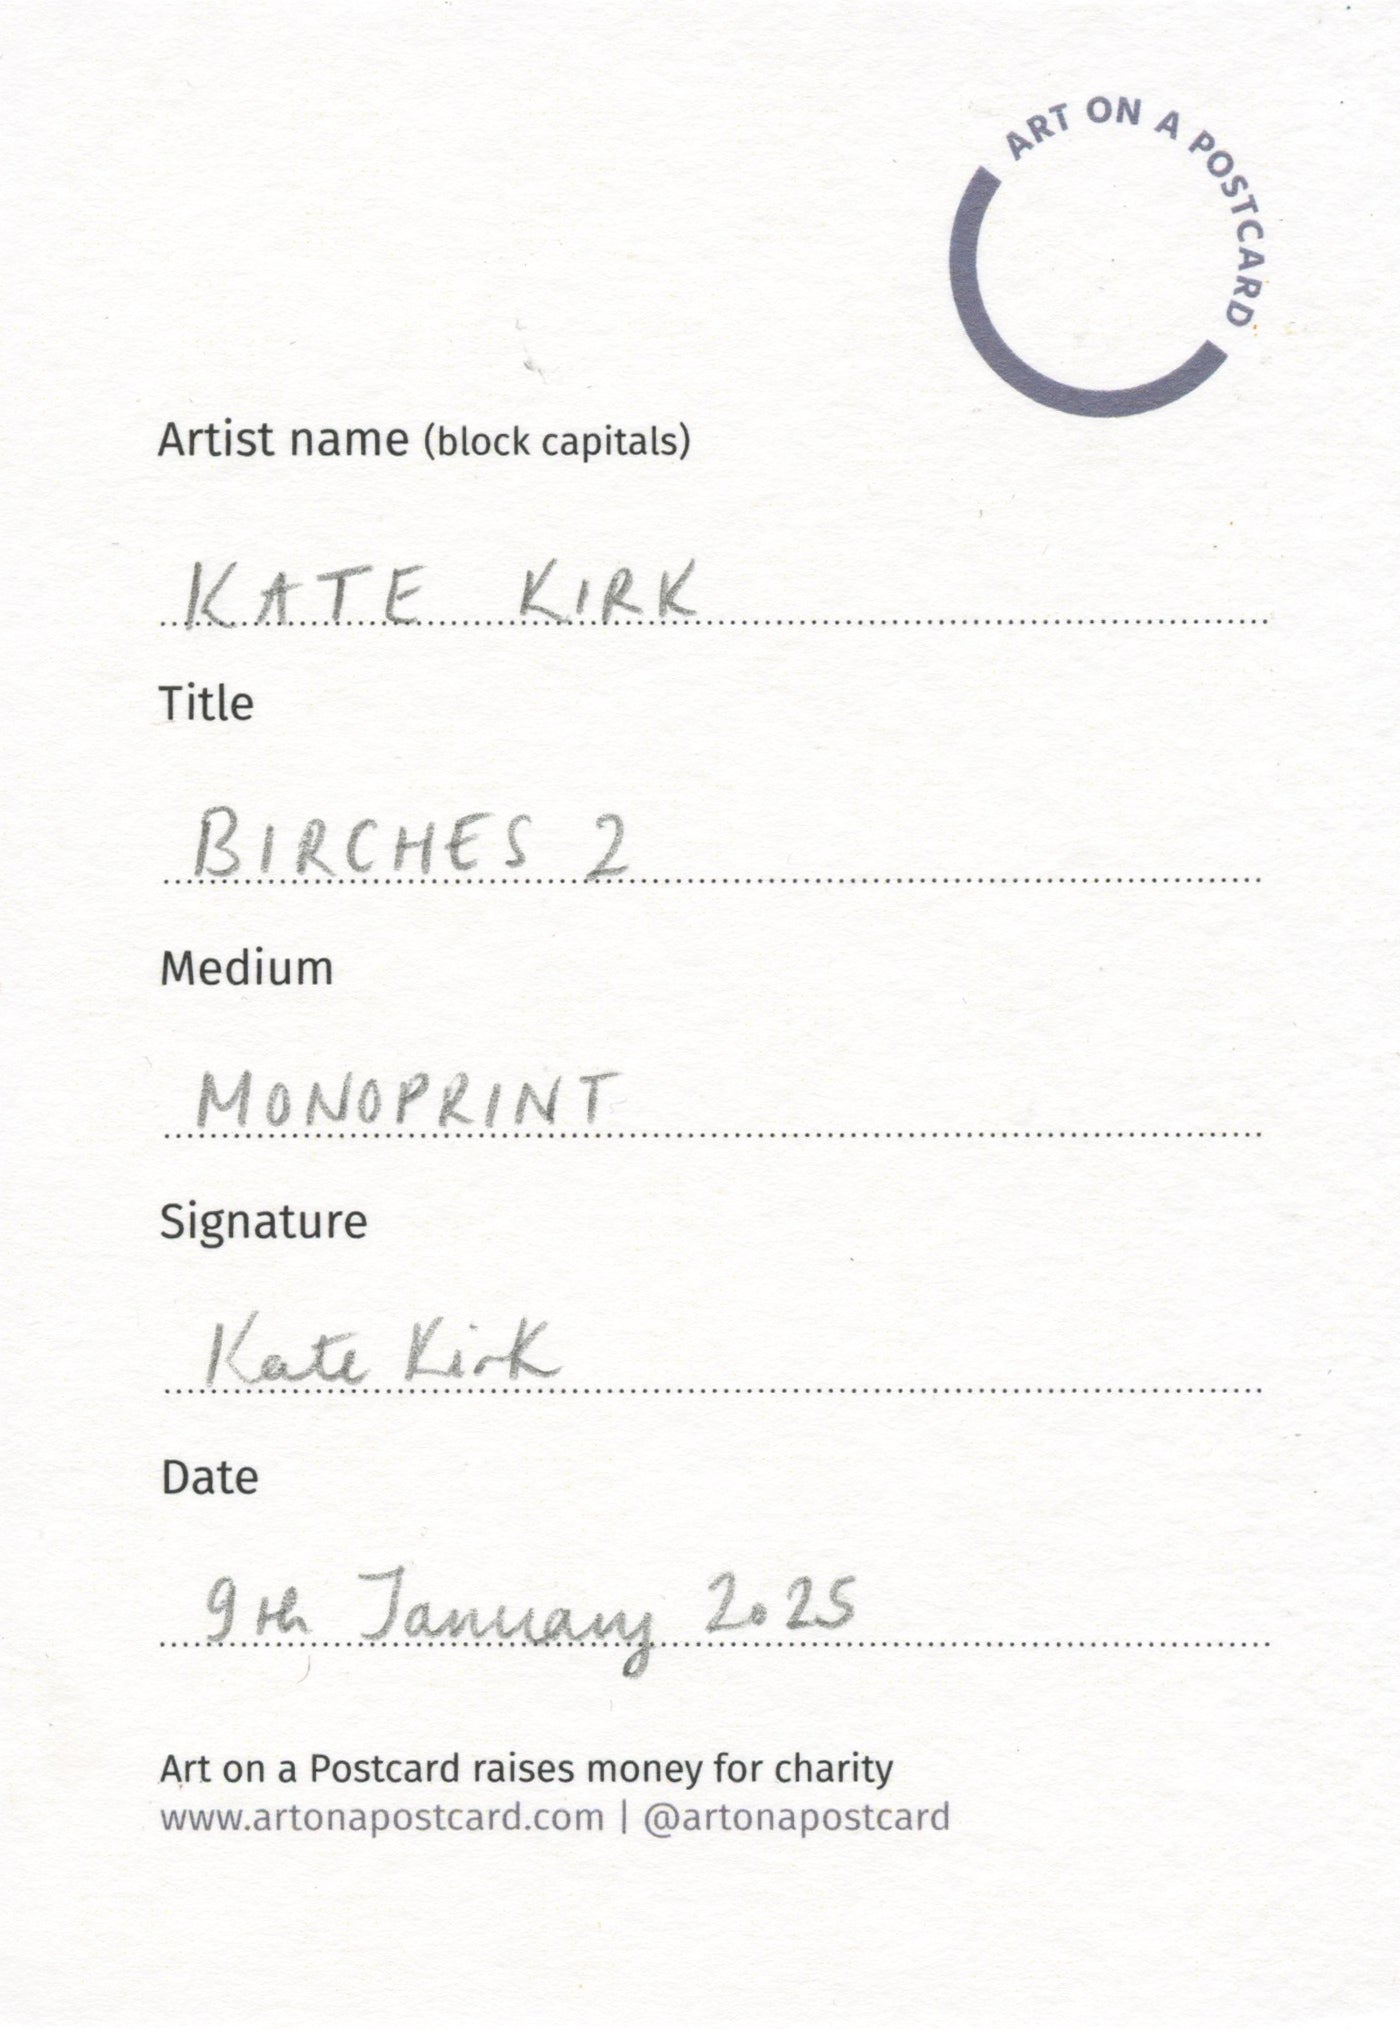 ART ON A POSTCARD
Artist name (block capitals)
KATE KIRK
Title
BIRCHES 2
Medium
MONOPRINT
Signature
Kate Kirk
Date
9th January 2025
Art on a Postcard raises money for charity
www.artonapostcard.com | @artonapostcard